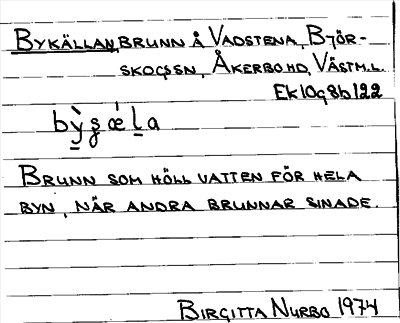 BYKÄLLAN, BRUNN Å VADSTENA, BJÖR-
SKOGSSN, ÅKERBO HD, VÄSTM.L.
Ek 10g8b122
bỳ̱ʂæ̍ḻa
BRUNN SOM HÖLL VATTEN FÖR HELA
BYN, NÄR ANDRA BRUNNAR SINADE.
BIRGITTA NURBO 1974